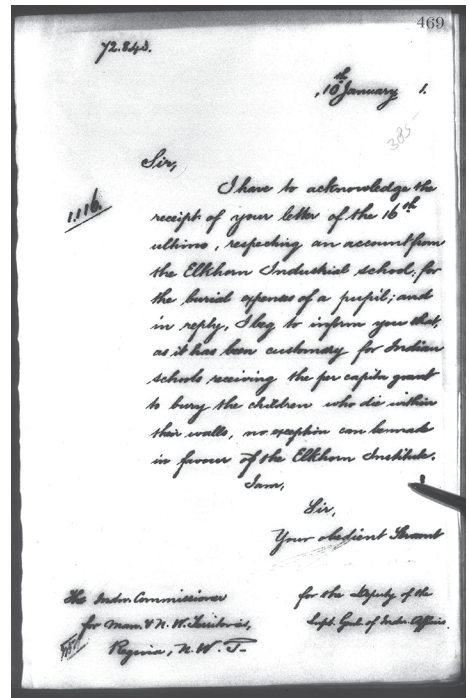 469
72.840.
10th January 1.
385
Sir,
1.116.
I have to acknowledge the
receipt of your letter of the 16th
ultimo, respecting an account from
the Elkhorn Industrial school, for
the burial expenses of a pupil; and
in reply, I beg to inform you that,
as it has been customary for Indian
schools receiving the per capita grant
to bury the children who die within
their walls, no exception can be made
in favour of the Elkhorn Institute.
I am,
Sir,
Your obedient Servant
for the Deputy of the
Supt. Genl. of Indn. Affairs.
The Indn. Commissioner
for Man. & N. W. Territories,
Regina, N. W. T.